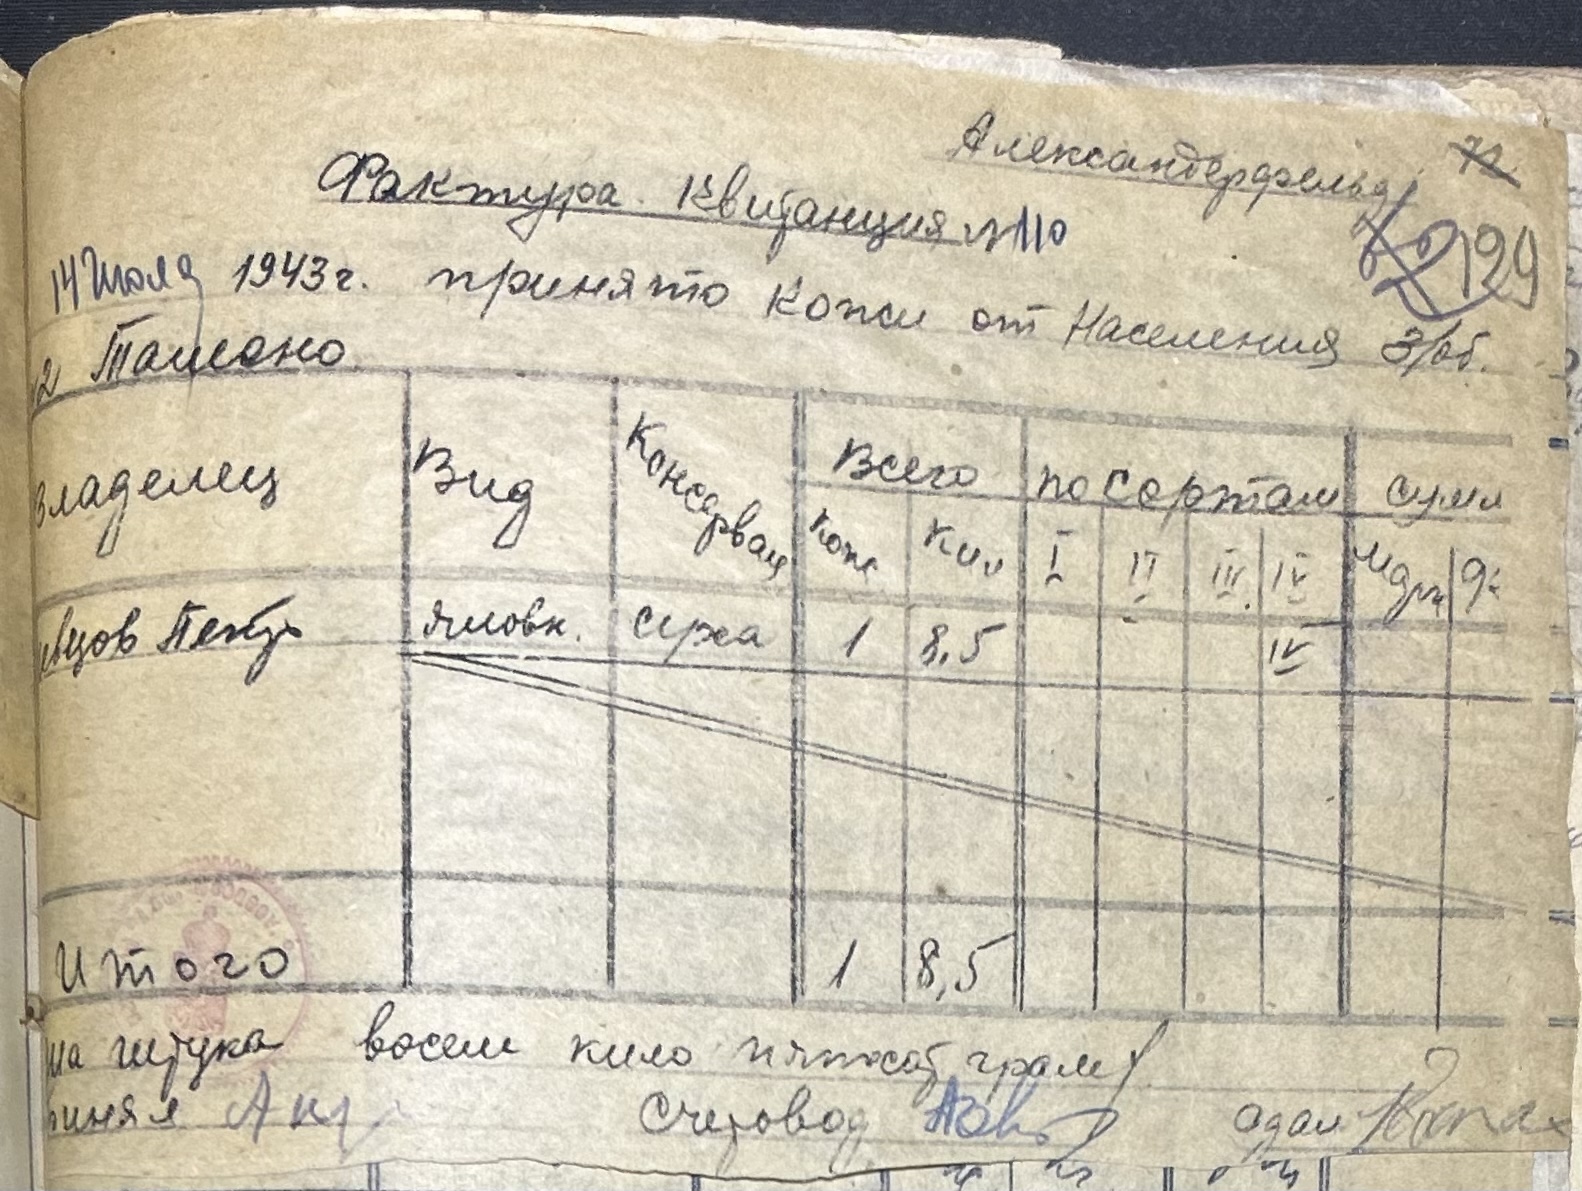 Александерфельд
72
129
Фактура. Квитанция № 110
14 Июля 1943 г. принято Кожи от Населения З/об.
Ташоно
Владелец Вид Консервац Всего по сортам сумм
Кож Кил I II III IV Мар
Петр яловк. суха 1 8,5 IV
Итого 1 8,5
на штука восем кило пятьсот грам
принял Счетовод сдал